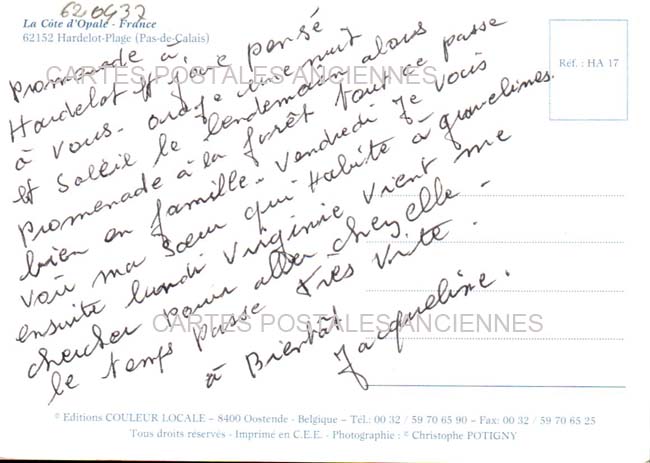 620437
La Côte d'Opale - France
62152 Hardelot-Plage (Pas-de-Calais)
Réf. : HA 17
Promenade à
Hardelot et j'ai pensé
à vous. orage une nuit
et soleil le lendemain alors
promenade à la forêt tout ce passe
bien en famille - Vendredi Je vous
voir ma sœur qui Habite à gravelines.
ensuite lundi Virginie vient me
chercher pour aller chez elle -
le temps passe très vite.
à Bientôt
Jacqueline.
CARTES POSTALES ANCIENNES
CARTES POSTALES ANCIENNES
© Editions COULEUR LOCALE – 8400 Oostende - Belgique – Tél.: 00 32 / 59 70 65 90 – Fax: 00 32 / 59 70 65 25
Tous droits réservés - Imprimé en C.E.E. - Photographie : © Christophe POTIGNY